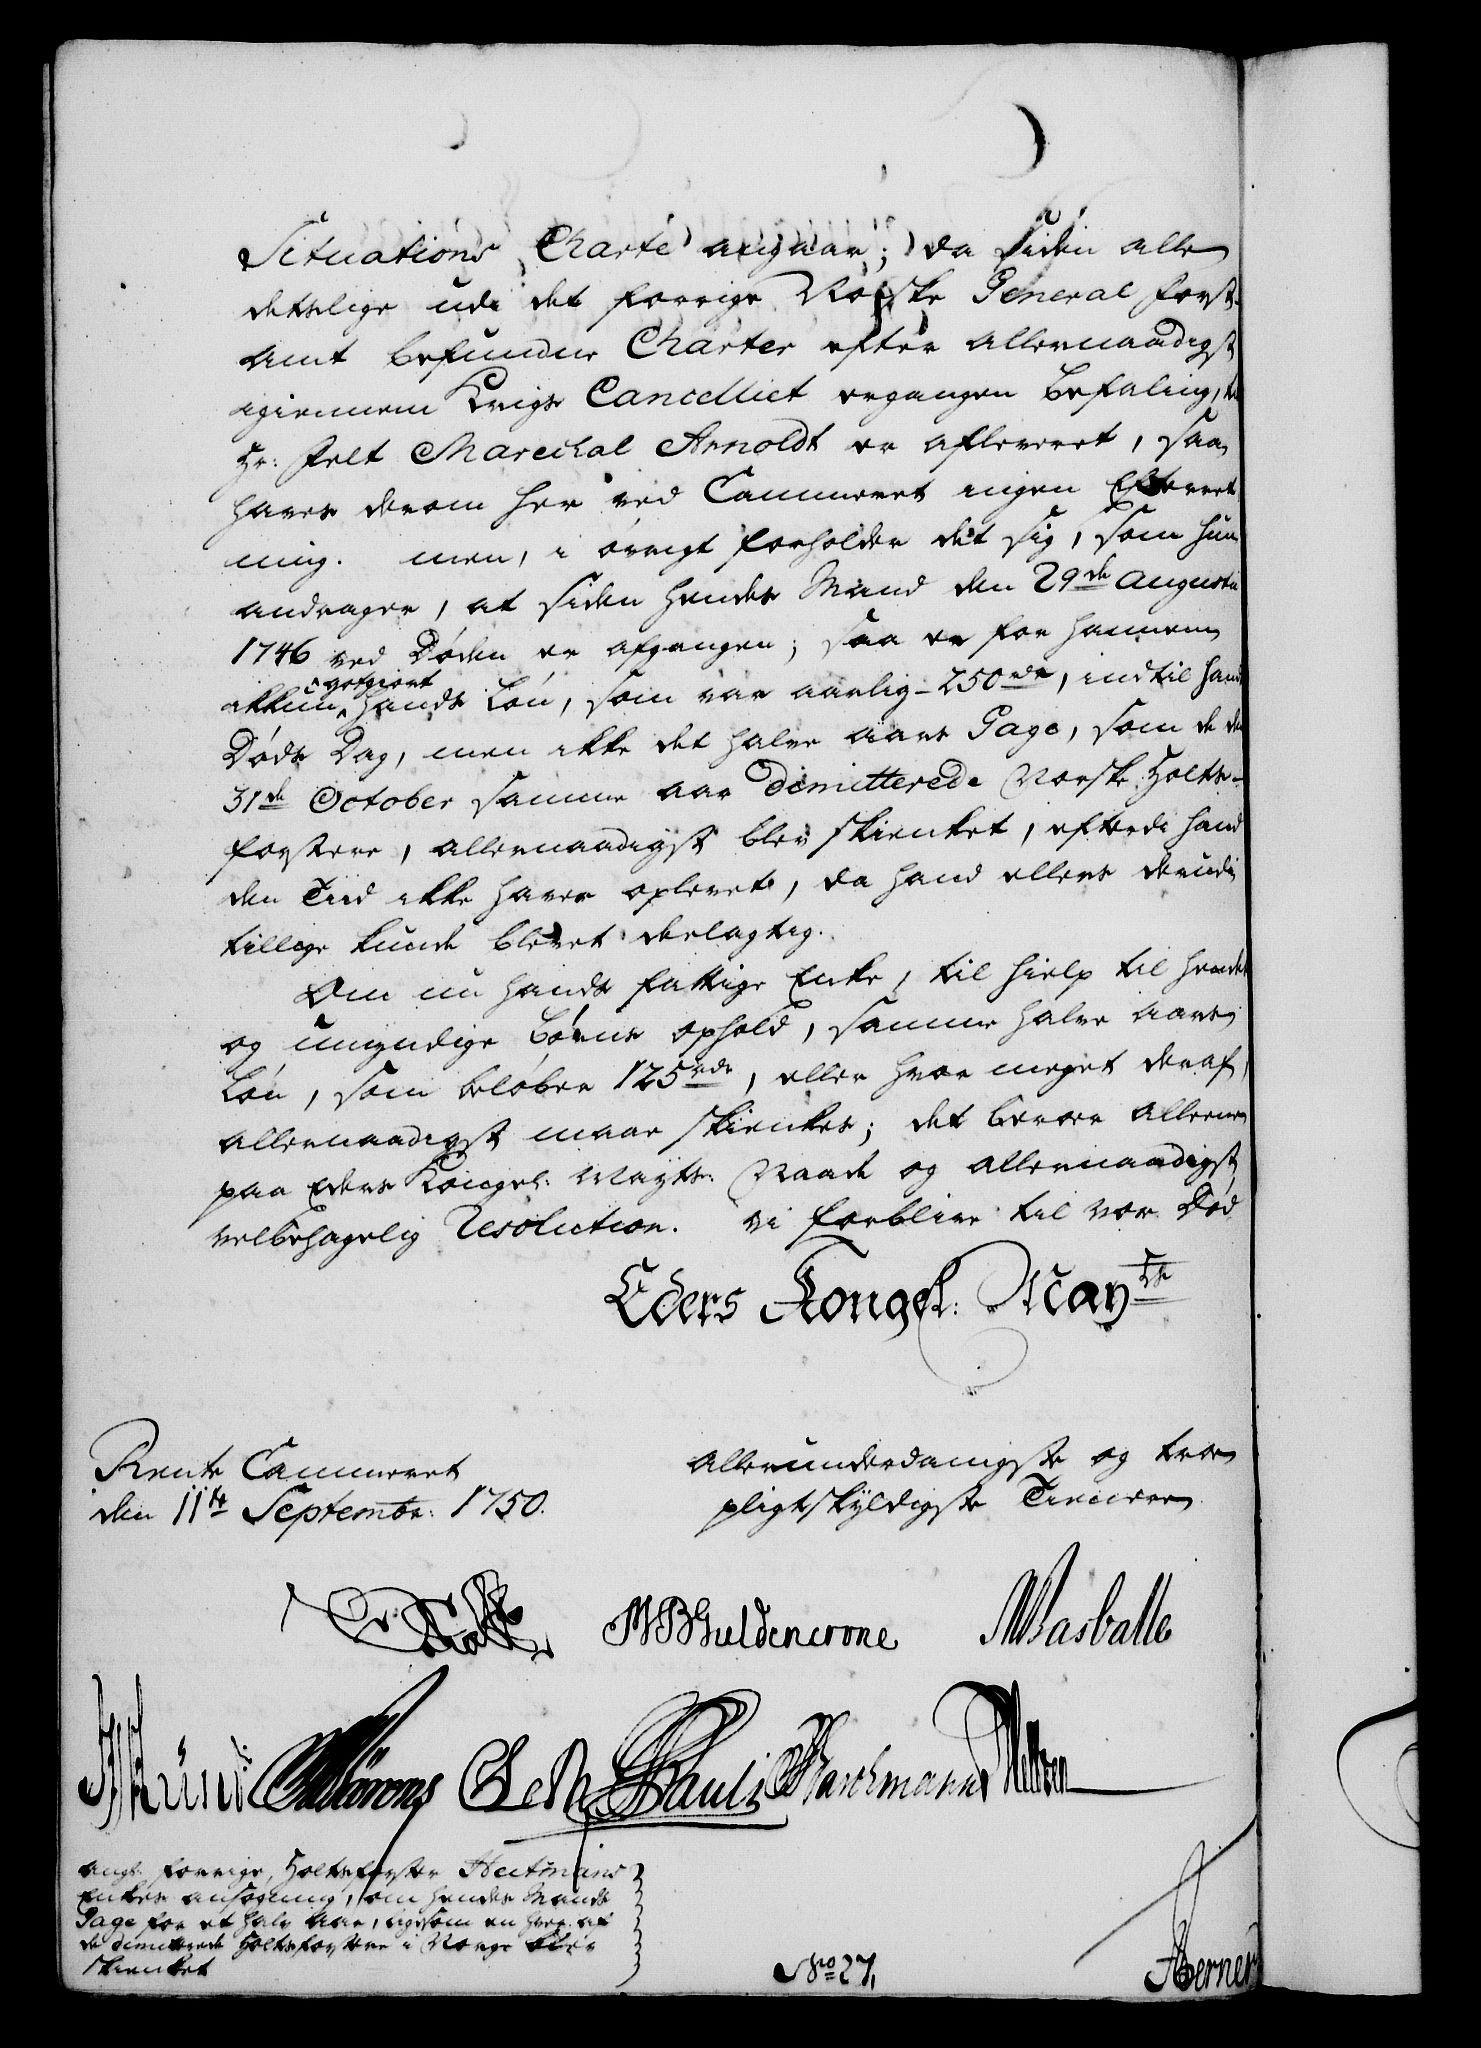 Situations Charte angaar; da siden alle
deslige udi det forrige Norske General Forst-
Amt befundne Charter efter allernaadigst
igiennem Krigs Cancelliet ergangen Befaling, til
Hr: Felt Marechal Arnoldt er afleveret, saa
haves derom her ved Cammeret ingen Efterret
ning. men, i øvrigt forholder det sig, som hun
andrager, at siden hendes Mand den 29de Augusti
1746 ved Døden er afgangen; saa er for hannem
ikkun godgiort hands Løn, som var aarlig - 250 rdr, indtil hands
Døds Dag, men ikke det halve aars Gage, som de den
31de October samme aar dimitterede Norske Holtz-
forstere, allernaadigst blev skienket, efterdi hand
den Tiid ikke haver oplevet, da hand ellers derudi
tillige kunde blevet deelagtig.
Om nu hands fattige Enke, til hielp til hendes
og umyndige Børns ophold, samme halve aars
Løn, som beløber 125 rdr, eller hvor meget deraf,
allernaadigst maae skienkes; det beroer alleene
paa Eders Kongel: Mayts: Naade og allernaadigst
velbehagelig Resolution. Vi forblive til vor Død
Eders Kongel: Mayts
Rente Cammeret
den 11te Septembr: 1750.
allerunderdanigste og troe
pligtskyldigste Tienere
MBGuldencrone MBasballe
Pauli Barchmann
angl: forrige Holtzforster Heitmans
Enkes ansøgning, om hendes Mands
Gage for et halv Aar, ligesom en hver af
de dimitterede Holtzforstere i Norge blev
skienket
No 27,
Berner